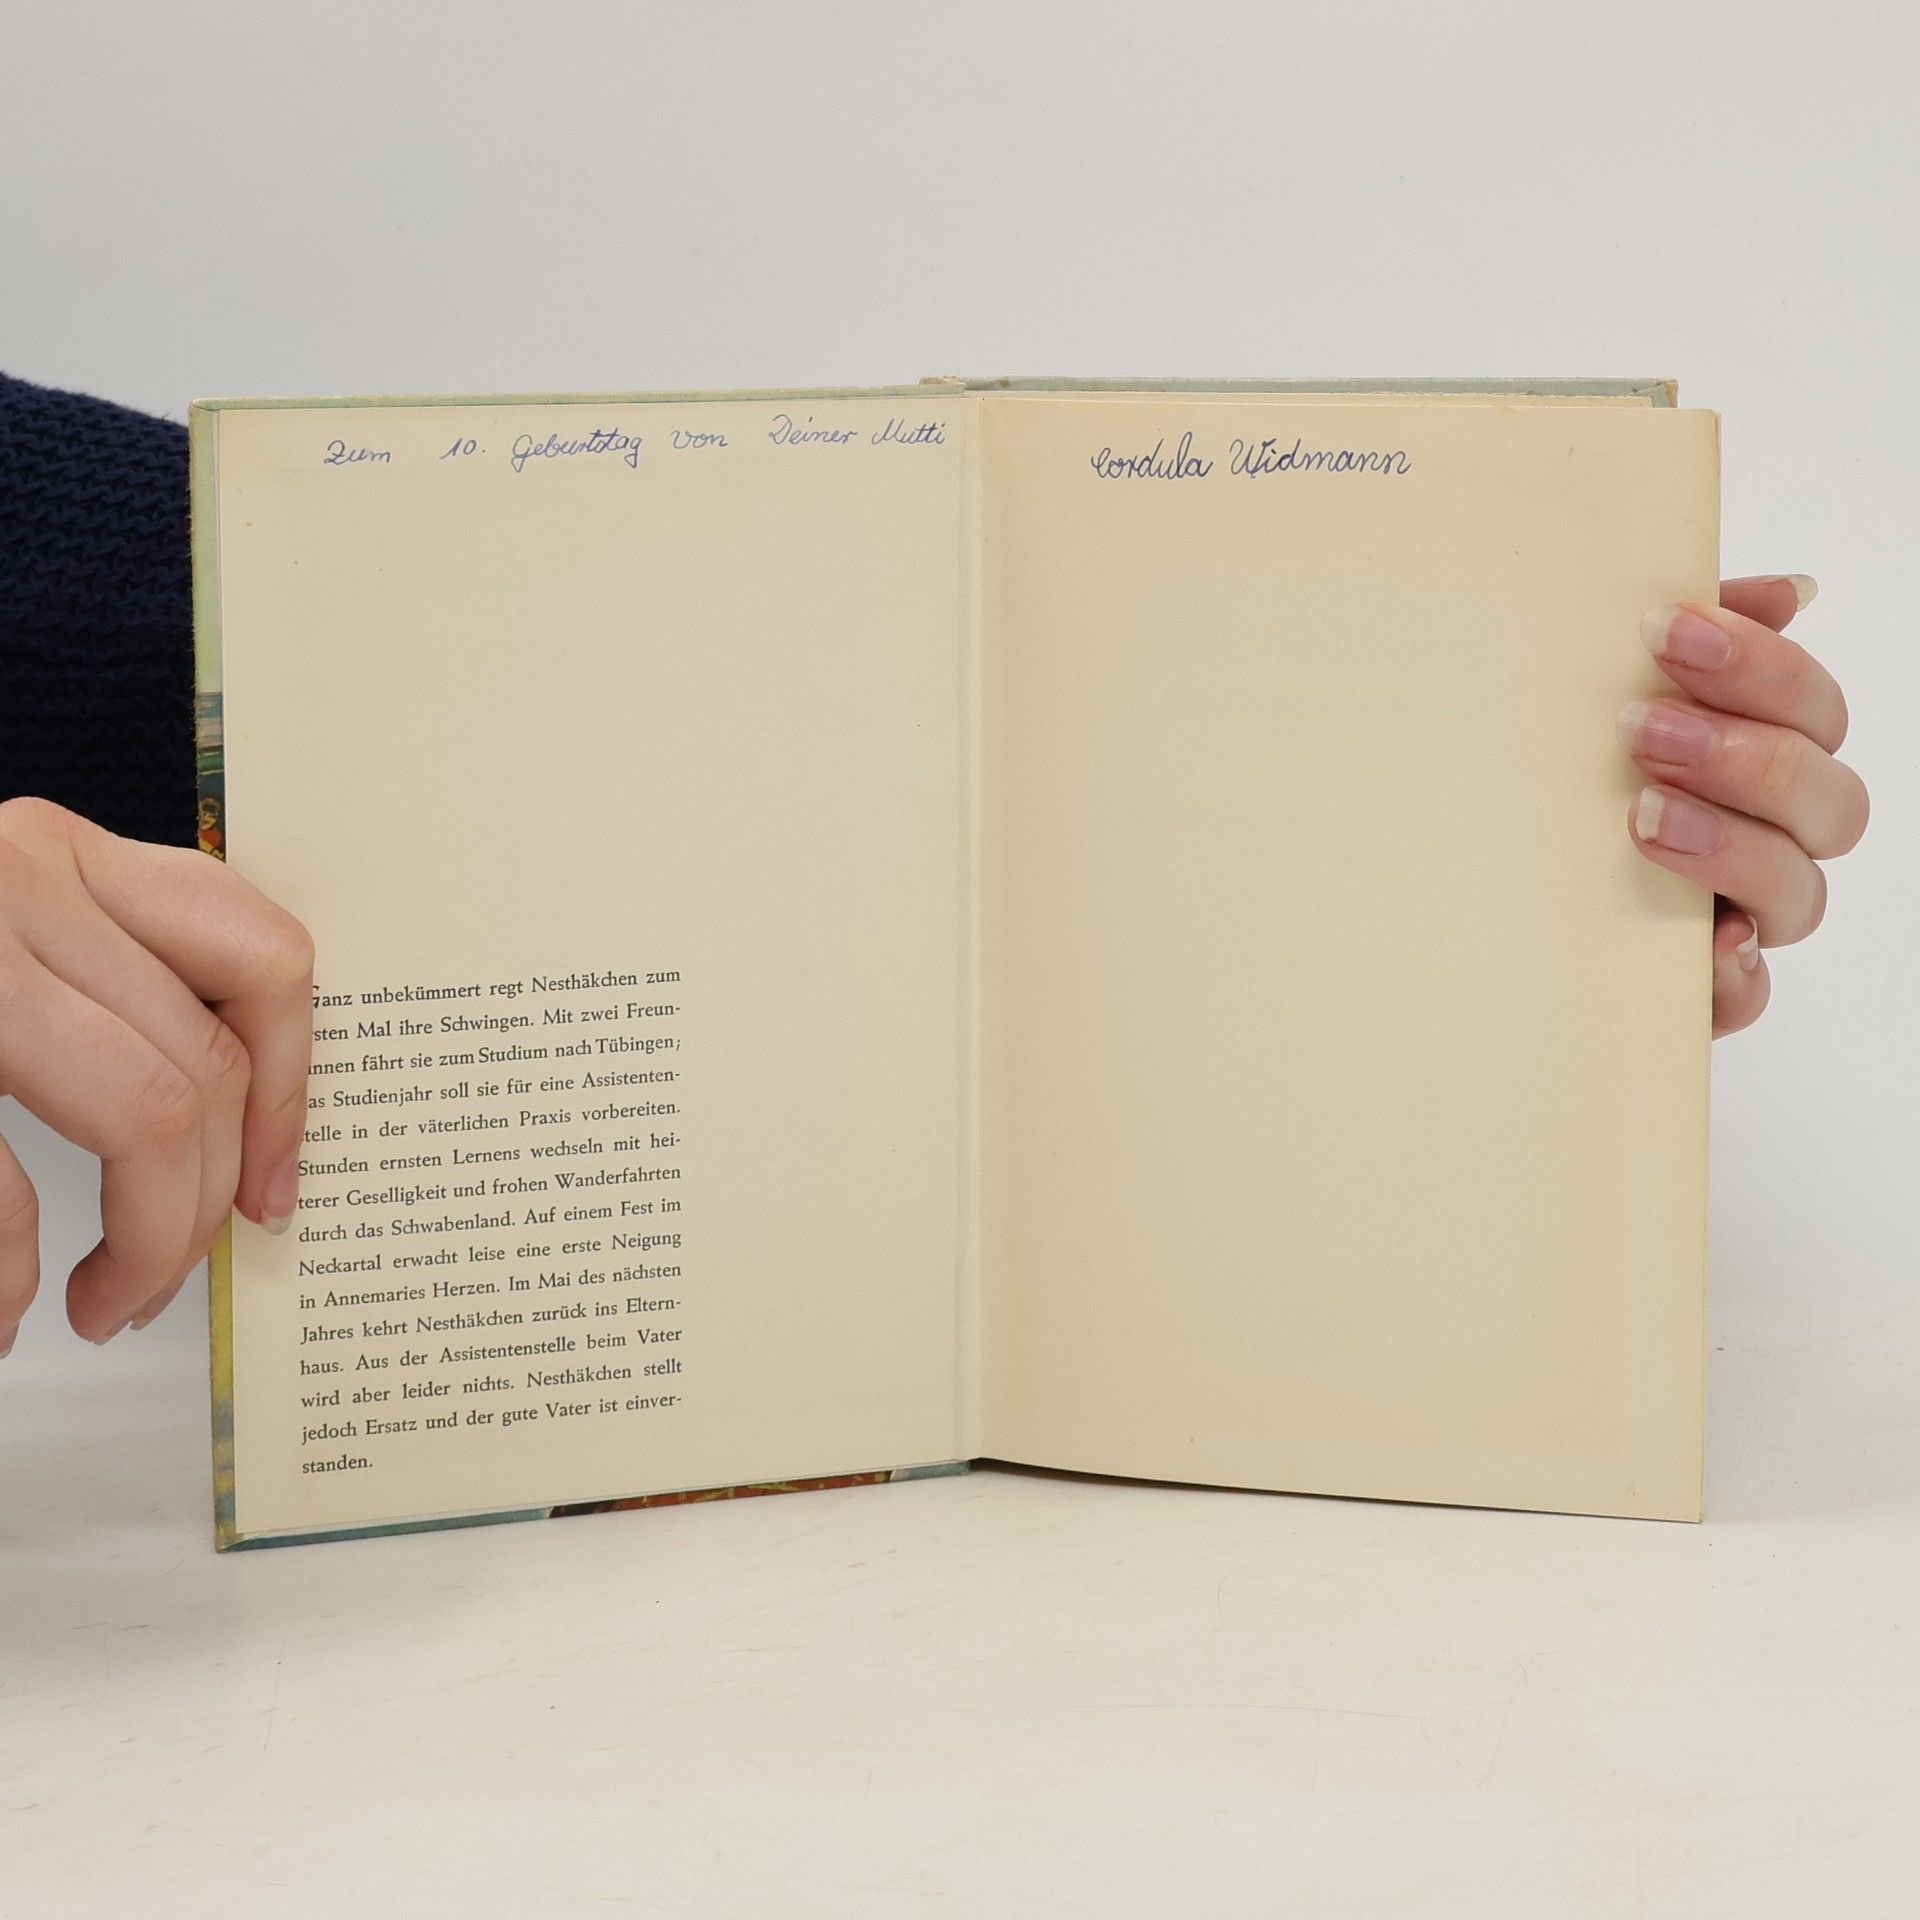 Zum 10. Geburtstag von Deiner Mutti
Cordula Widmann
Ganz unbekümmert regt Nesthäkchen zum
sten Mal ihre Schwingen. Mit zwei Freun-
innen fährt sie zum Studium nach Tübingen;
as Studienjahr soll sie für eine Assistenten-
telle in der väterlichen Praxis vorbereiten.
Stunden ernsten Lernens wechseln mit hei-
terer Geselligkeit und frohen Wanderfahrten
durch das Schwabenland. Auf einem Fest im
Neckartal erwacht leise eine erste Neigung
in Annemaries Herzen. Im Mai des nächsten
Jahres kehrt Nesthäkchen zurück ins Eltern-
haus. Aus der Assistentenstelle beim Vater
wird aber leider nichts. Nesthäkchen stellt
jedoch Ersatz und der gute Vater ist einver-
standen.